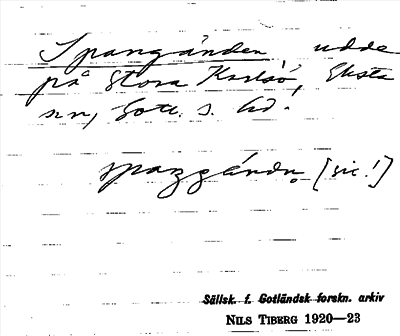 Spangänden udde
på Stora Karlsö, Eksta
sn, Gotl. S. hd.
spazgǻndn̥ [sic!]
Sällsk. f. Gotländsk forskn. arkiv
NILS TIBERG 1920—23